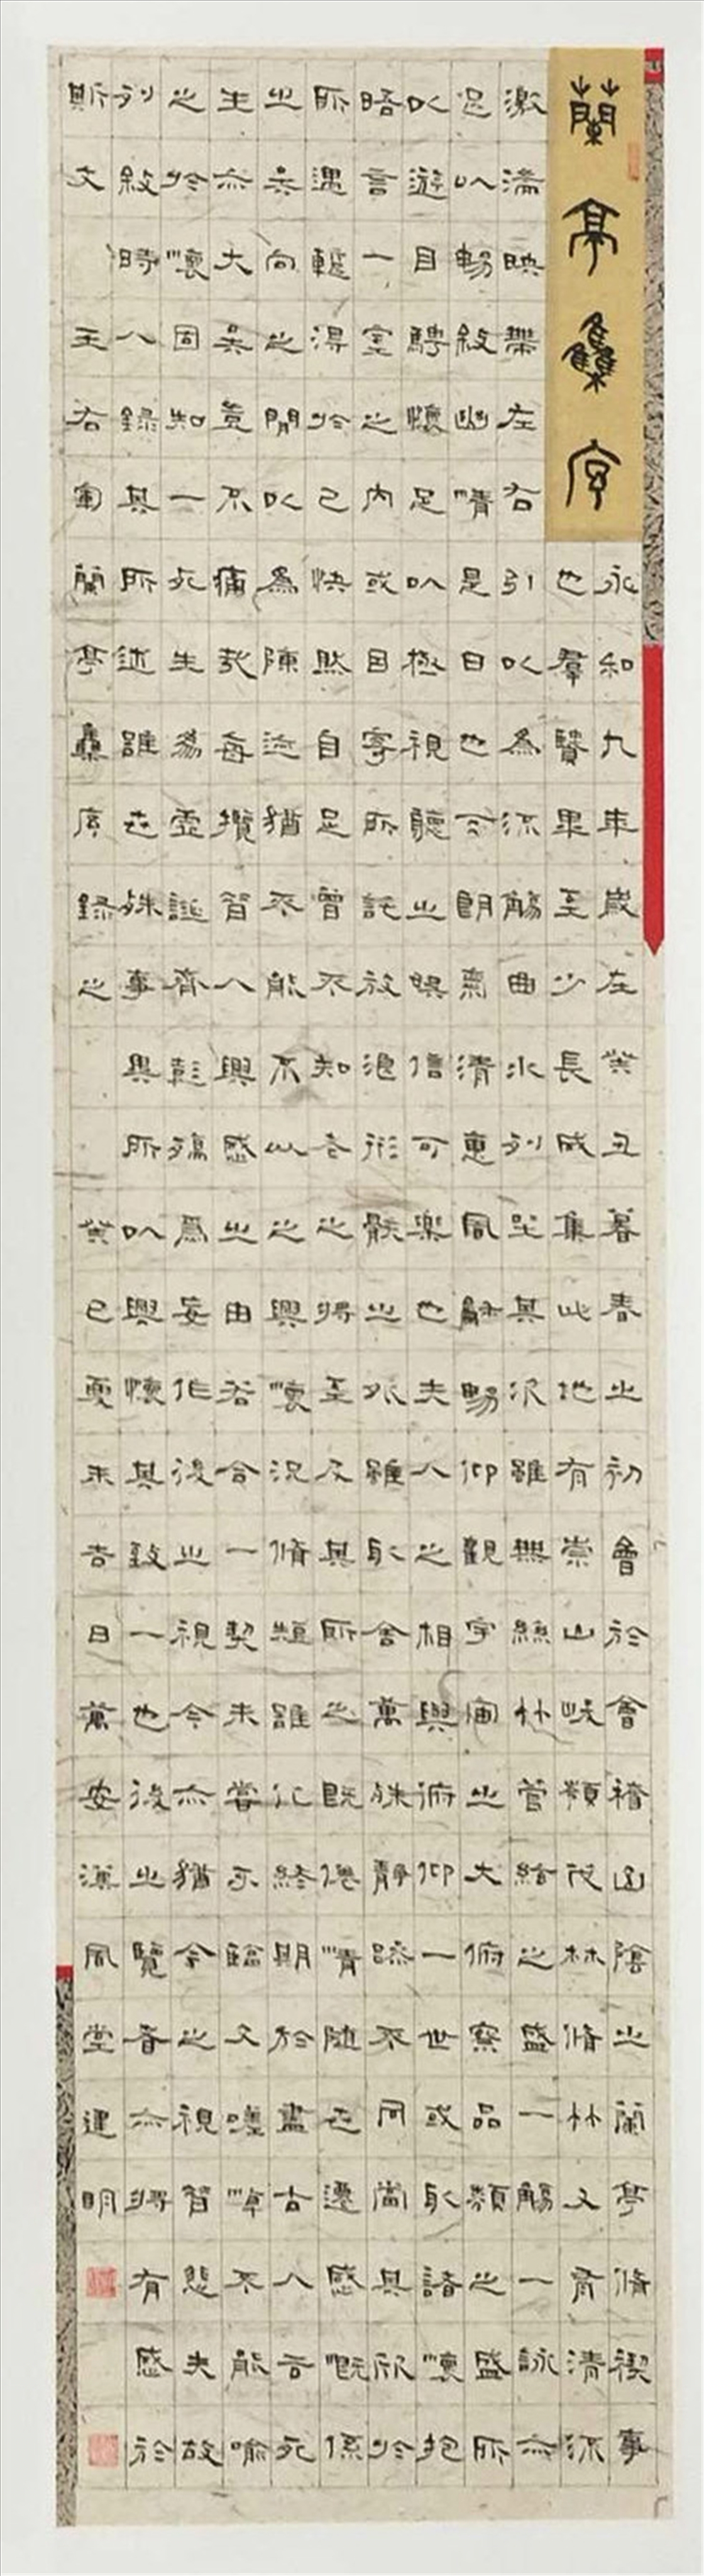 蘭亭雧序
永和九年歲在癸丑暮春之初會於會稽山陰之蘭亭脩禊事
也羣賢畢至少長咸集此地有崇山峻領茂林脩竹又有清流
激湍映帶左右引以為流觴曲水列坐其次雖無絲竹管絃之盛一觴一詠亦
足以暢敘幽情是日也天朗氣清惠風龢暢仰觀宇宙之大俯察品類之盛所
以遊目騁懷足以極視聽之娛信可樂也夫人之相與俯仰一世或取諸懷抱
晤言一室之內或因寄所託放浪形骸之外雖取舍萬殊靜躁不同當其欣於
所遇蹔得於己快然自足曾不知老之將至及其所之既倦情隨世遷感慨係
之矣向之閒以為陳迹猶不能不以之興懷況脩短雖化終期於盡古人云死
生亦大矣豈不痛哉每攬昔人興感之由若合一契未嘗不臨文嗟悼不能喻
之於懷固知一死生為虛誕齊彭殤為妄作後之視今亦猶今之視昔悲夫故
列敘時人錄其所述雖世殊事異所以興懷其致一也後之覽者亦將有感於
斯文 王右軍蘭亭雧序錄之 癸巳夏末吉日萬安漢風堂建明